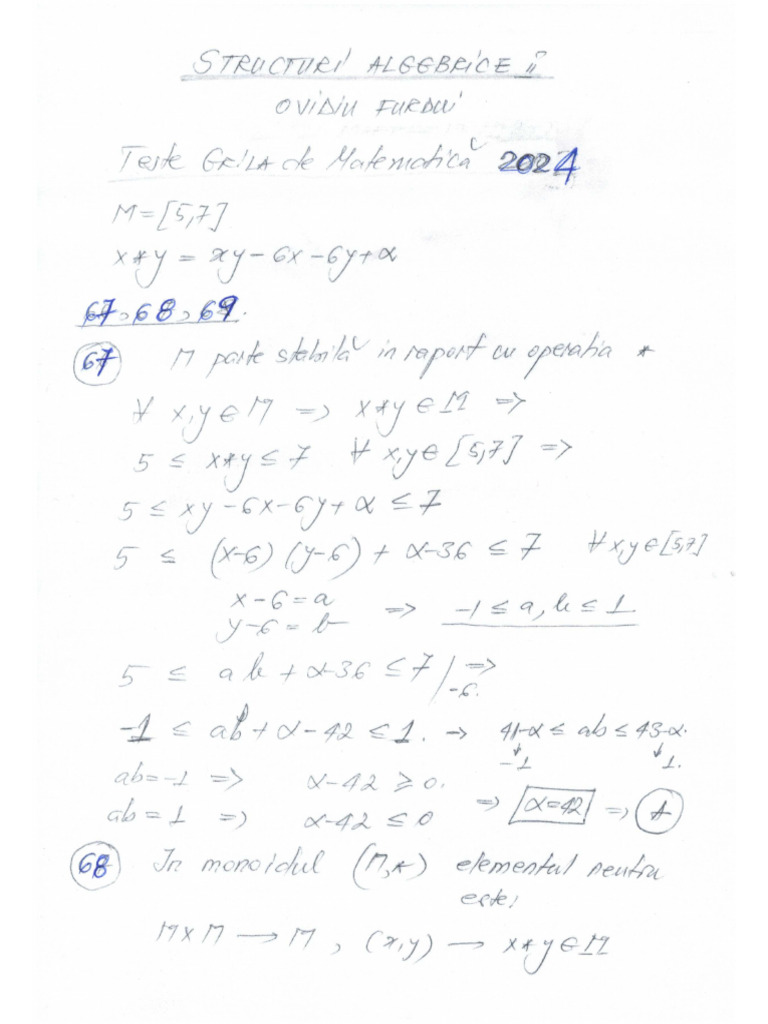 STRUCTURI ALGEBRICE II
OVIDIU FURDUI
Teste GRILA de Matematică 2024
M=[5,7]
x*y = xy-6x-6y+α
67, 68, 69.
67 M parte stabilă in raport cu operatia *
∀ x,y∈M => x*y∈M =>
5 ≤ x*y ≤ 7 ∀ x,y∈[5,7] =>
5 ≤ xy-6x-6y+α ≤ 7
5 ≤ (x-6)(y-6)+α-36 ≤ 7 ∀x,y∈[5,7]
x-6=a
y-6=b => -1≤a,b≤1
5 ≤ ab+α-36 ≤ 7 /-6. =>
-1 ≤ ab+α-42 ≤ 1. → 41-α ≤ ab ≤ 43-α.
↓ ↓
-1 1.
ab=-1 => α-42 ≥ 0.
ab=1 => α-42 ≤ 0 => α=42 => A
68 In monoidul (M,*) elementul neutru
este:
M×M → M, (x,y) → x*y∈M